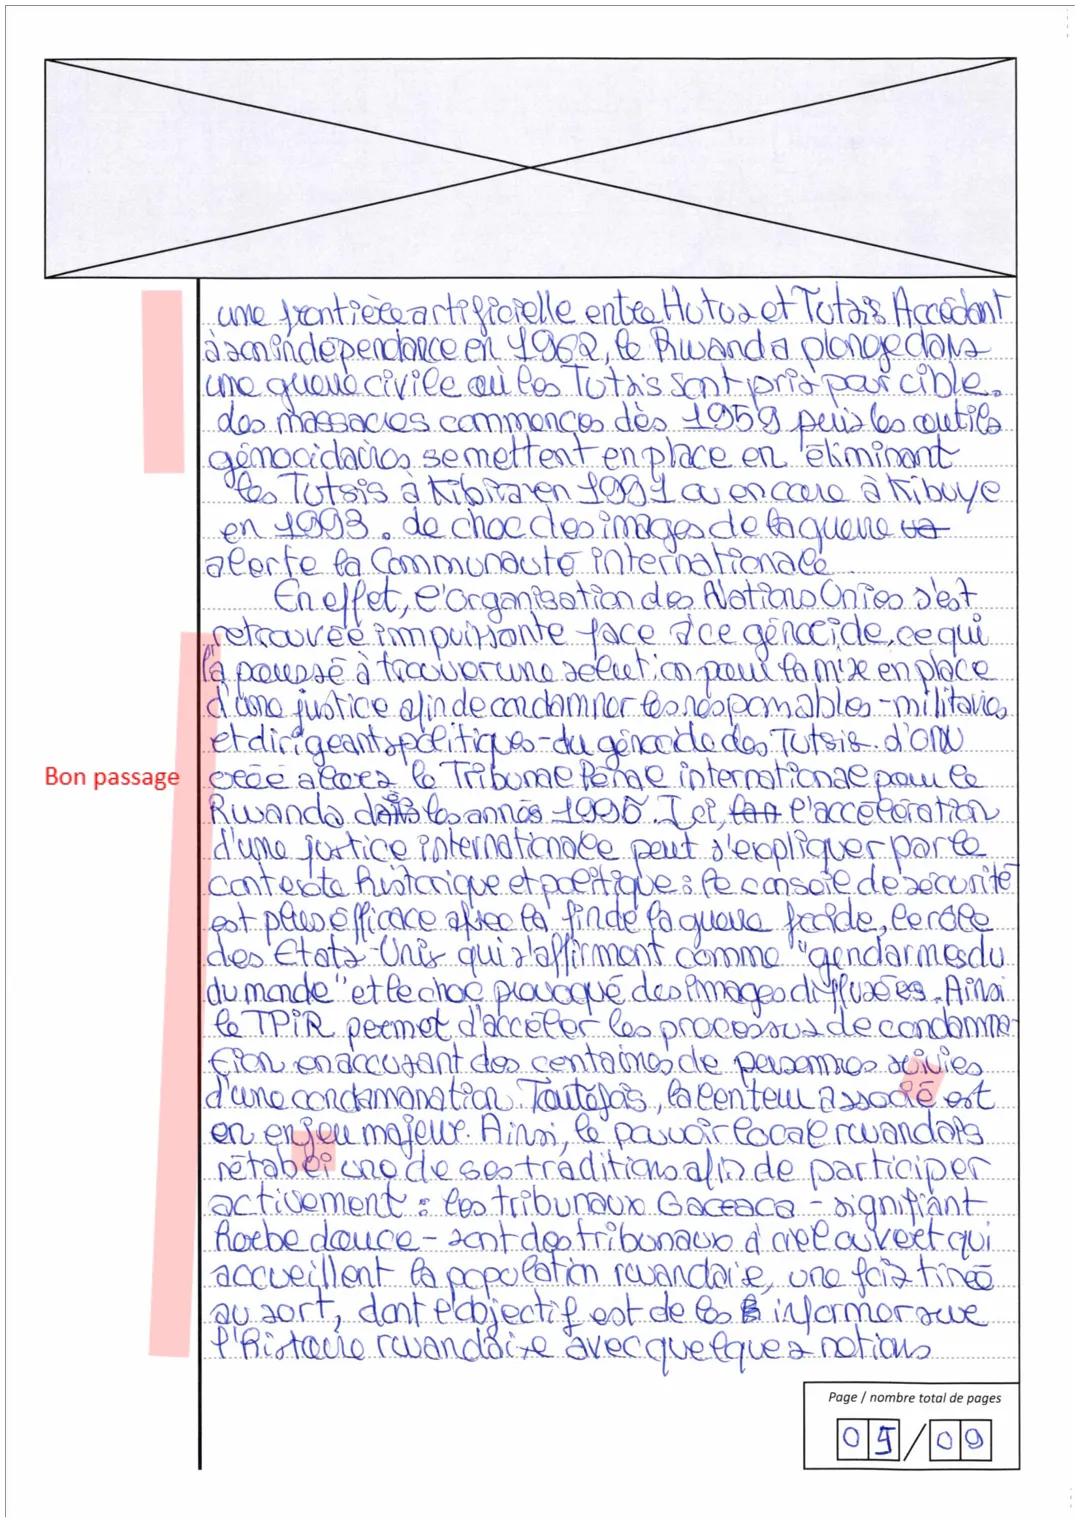 une frontière artificielle entre Hutus et Tutsis. Accédant
à son indépendance en 1962, le Rwanda plonge dans
une guerre civile où les Tutsis sont pris par cible.
des massacres commencés dès 1959 puis les outils
génocidaires se mettent en place en éliminant
les Tutsis à Kibira en 1991 ou encore à Kibuye
en 1993. de choc des images de la guerre
alerte la Communauté internationale.
En effet, l'Organisation des Nations Unies s'est
retrouvée impuissante face à ce génocide, ce qui
l'a poussé à trouver une solution pour la mise en place
d'une justice afin de condamner les responsables - militaires
et dirigeants politiques - du génocide des Tutsis. d'ONU
Bon passage
créé alors le Tribunal Pénal international pour le
Rwanda dans les années 1990. Ici, l'accélération
d'une justice internationale peut s'expliquer par le
contexte historique et politique : le conseil de sécurité
est plus efficace avec la fin de la guerre froide, le rôle
des Etats-Unis qui s'affirment comme "gendarmes du
du monde" et le choc provoqué des images diffusées. Ainsi
le TPIR permet d'accéler les processus de condamna-
tion en accusant des centaines de personnes suivies
d'une condamanation. Toutefois, la lenteur associé est
en enjeu majeur. Ainsi, le pouvoir local rwandais
rétabli une de ses traditions afin de participer
activement : les tribunaux Gacaca - signifiant
herbe douce - sont des tribunaux à ciel ouvert qui
accueillent la population rwandaise, une fois tirée
au sort, dont l'objectif est de les informer sur
l'histoire rwandaise avec quelques notions
Page / nombre total de pages
05/09